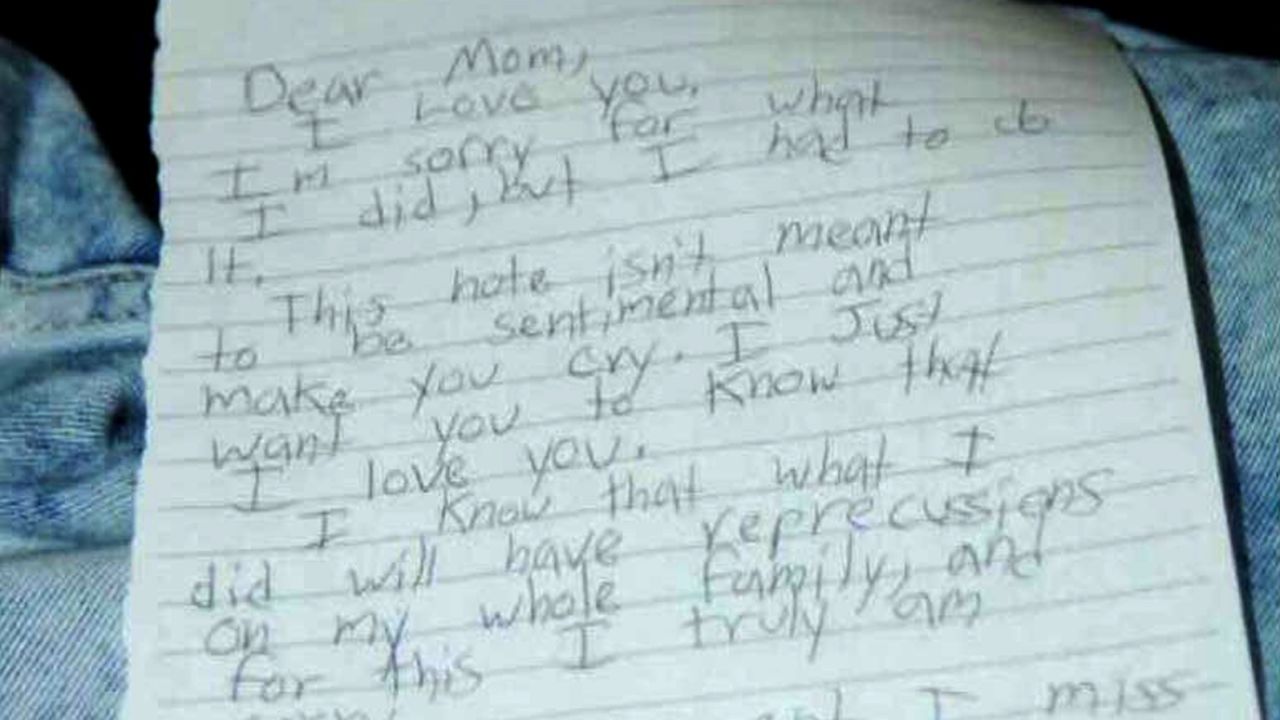 Dear Mom,
I Love you.
I'm sorry for what
I did, but I had to do
It.
This note isn't meant
to be sentimental and
make you cry. I Just
want you to Know that
I love you.
I Know that what I
did will have reprecussions
on my whole family, and
for this I truly am
I miss